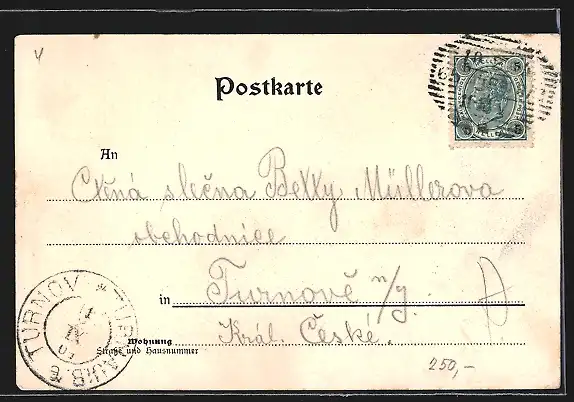 Postkarte
An
Ctěná slečna Betty Müllerova
obchodnice
in Turnově n/J.
Král. České.
Wohnung
Straße und Hausnummer
TURNOV * TURNAU
250,-